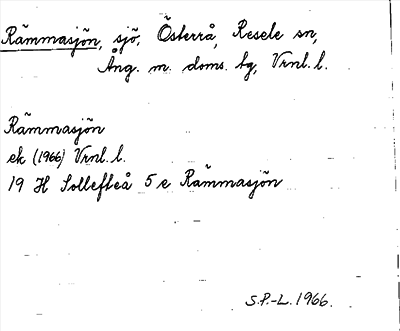 Rämmasjön, sjö, Österrå, Resele sn,
Ång. m. doms. tg, Vrnl. l.
Rämmasjön
ek (1966) Vrnl. l.
19 H Sollefteå 5 e Rämmasjön
S.P.-L. 1966.